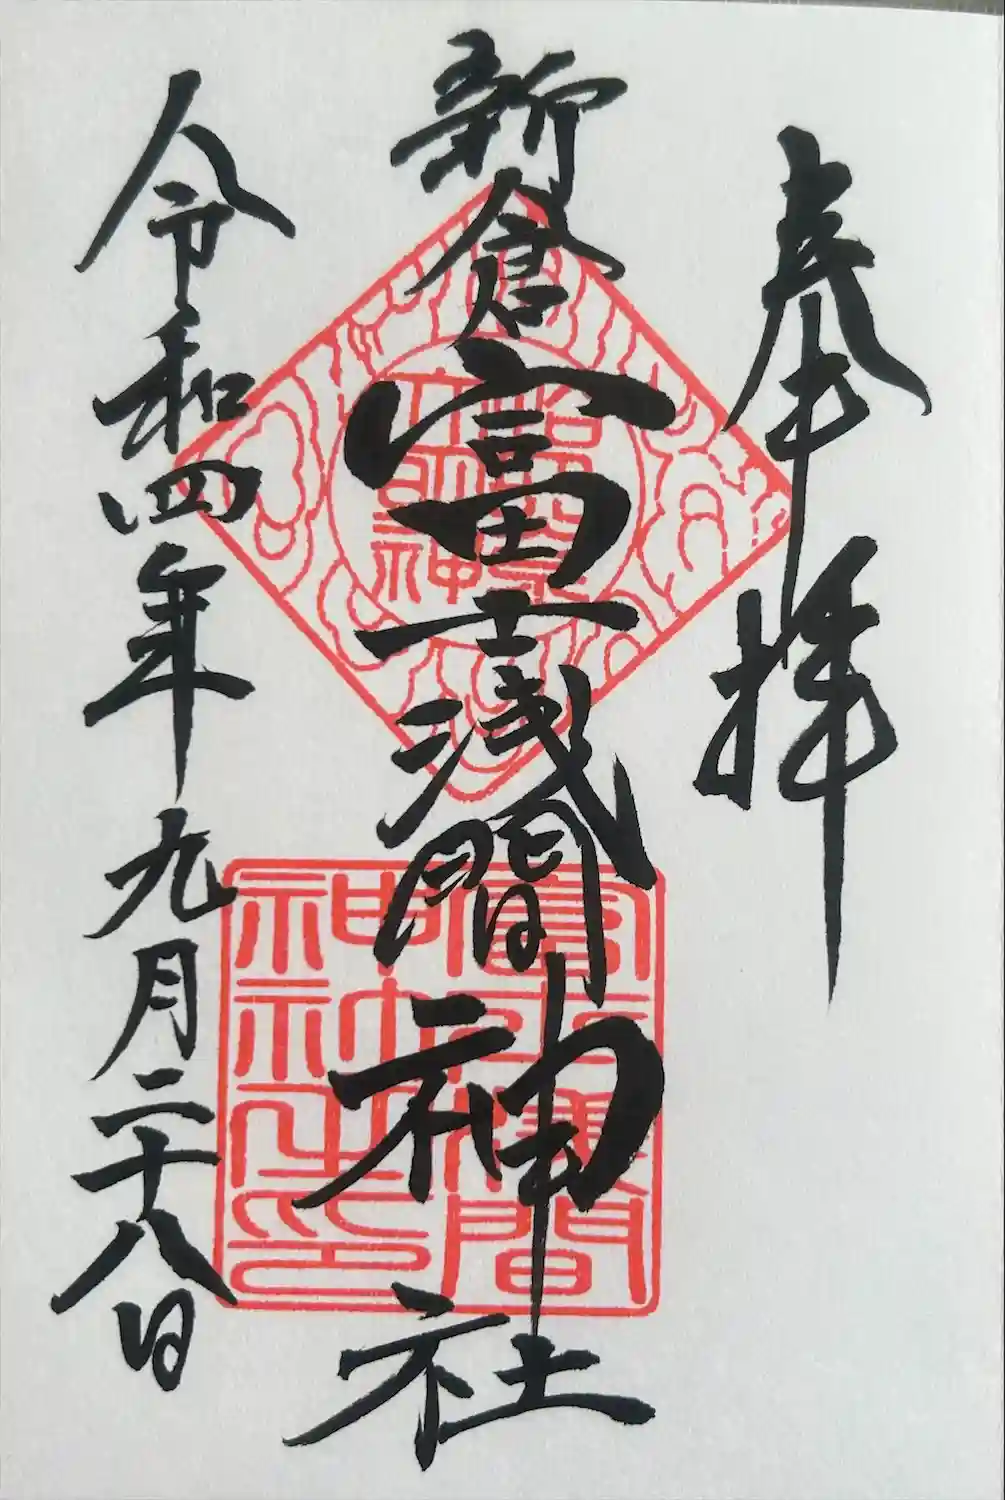 奉拝
新倉富士浅間神社
令和四年九月二十八日
冨士浅間
神社之印